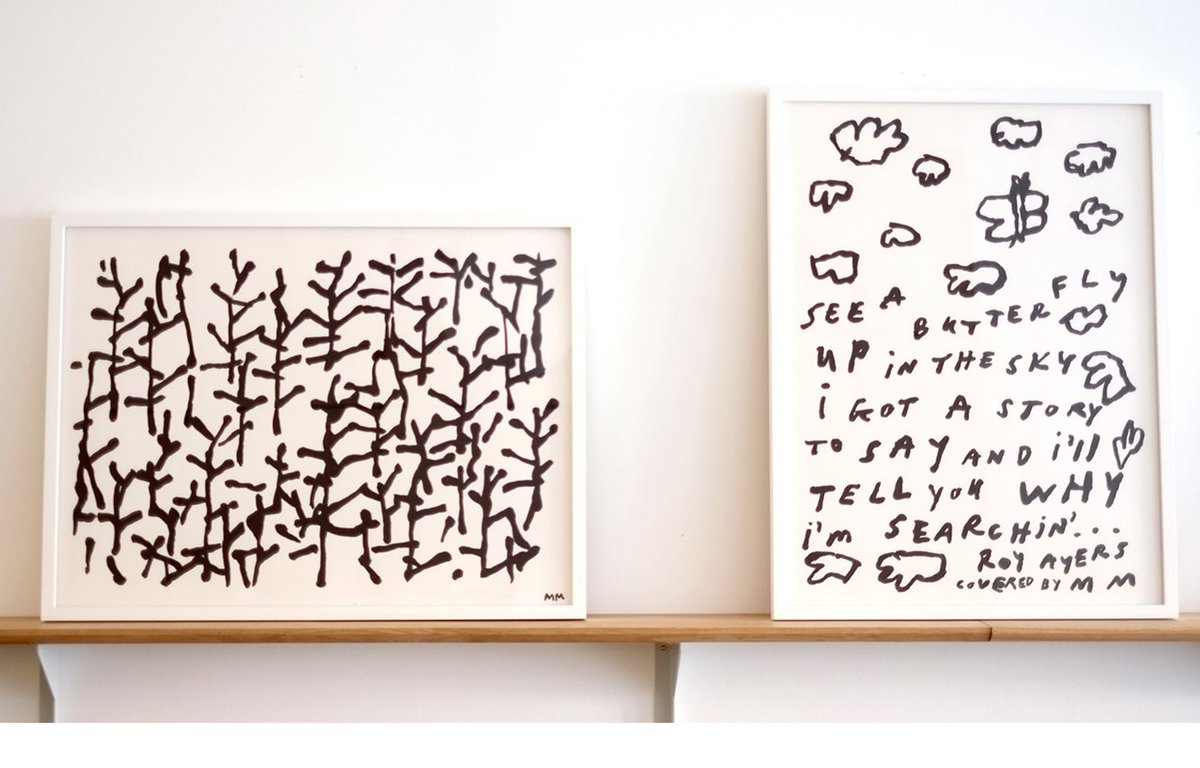 MM
SEE A BUTTERFLY
UP iN THE SKY
i GOT A STORY
TO SAY AND i'll
TELL yoU WHY
i'm SEARCHiN'...
ROY AYERS
COVERED BY M M